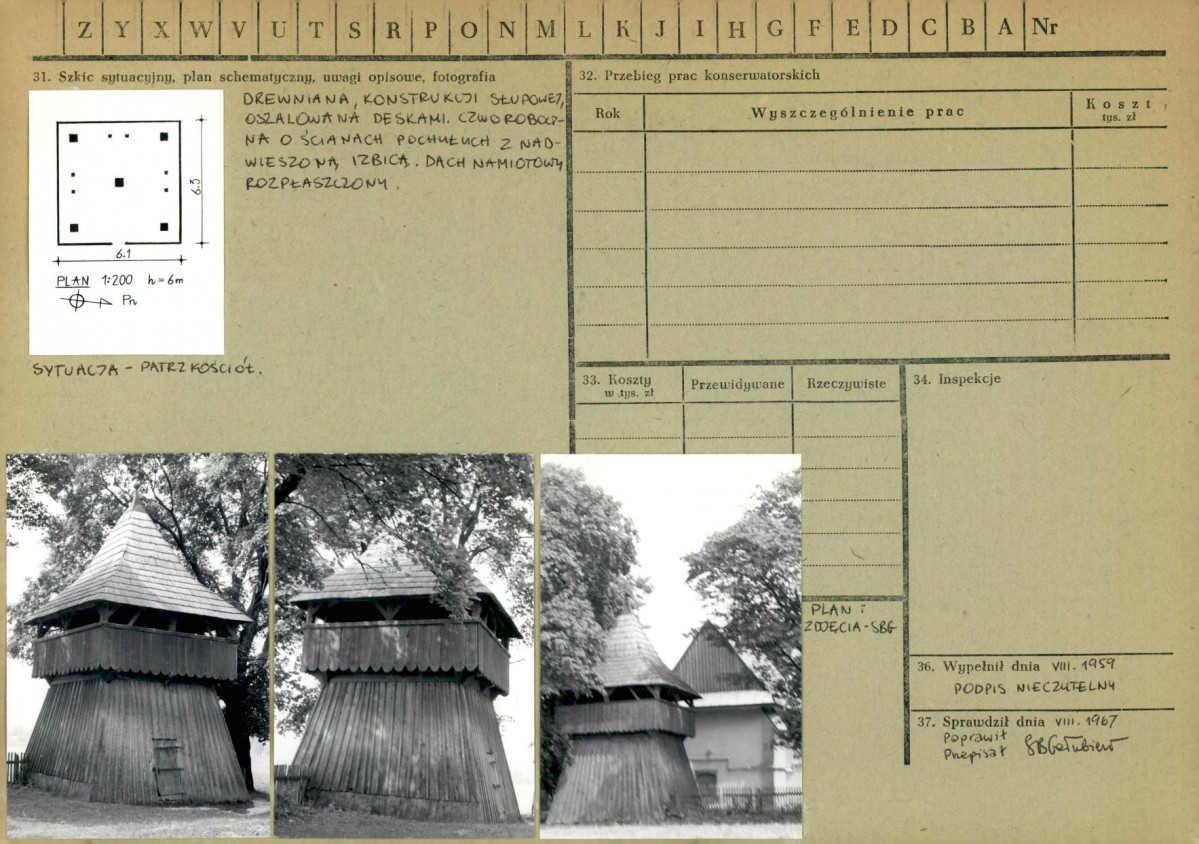 Z Y X W V U T S R P O N M L K J I H G F E D C B A Nr
31. Szkic sytuacyjny, plan schematyczny, uwagi opisowe, fotografia
DREWNIANA, KONSTRUKCJI SŁUPOWEJ,
OSZALOWANA DESKAMI. CZWOROBOCZ-
NA O ŚCIANACH POCHYŁYCH Z NAD-
WIESZONĄ IZBICĄ. DACH NAMIOTOWY
ROZPŁASZCZONY.
6.3
6.1
PLAN 1:200 h=6m
Pn
SYTUACJA - PATRZ KOŚCIÓŁ.
32. Przebieg prac konserwatorskich
Rok
Wyszczególnienie prac
Koszt
tys. zł
33. Koszty
w tys. zł
Przewidywane
Rzeczywiste
34. Inspekcje
PLAN i
ZDJĘCIA - SBG
36. Wypełnił dnia VIII. 1959
PODPIS NIECZYTELNY
37. Sprawdził dnia VIII. 1967
Poprawił
Przepisał